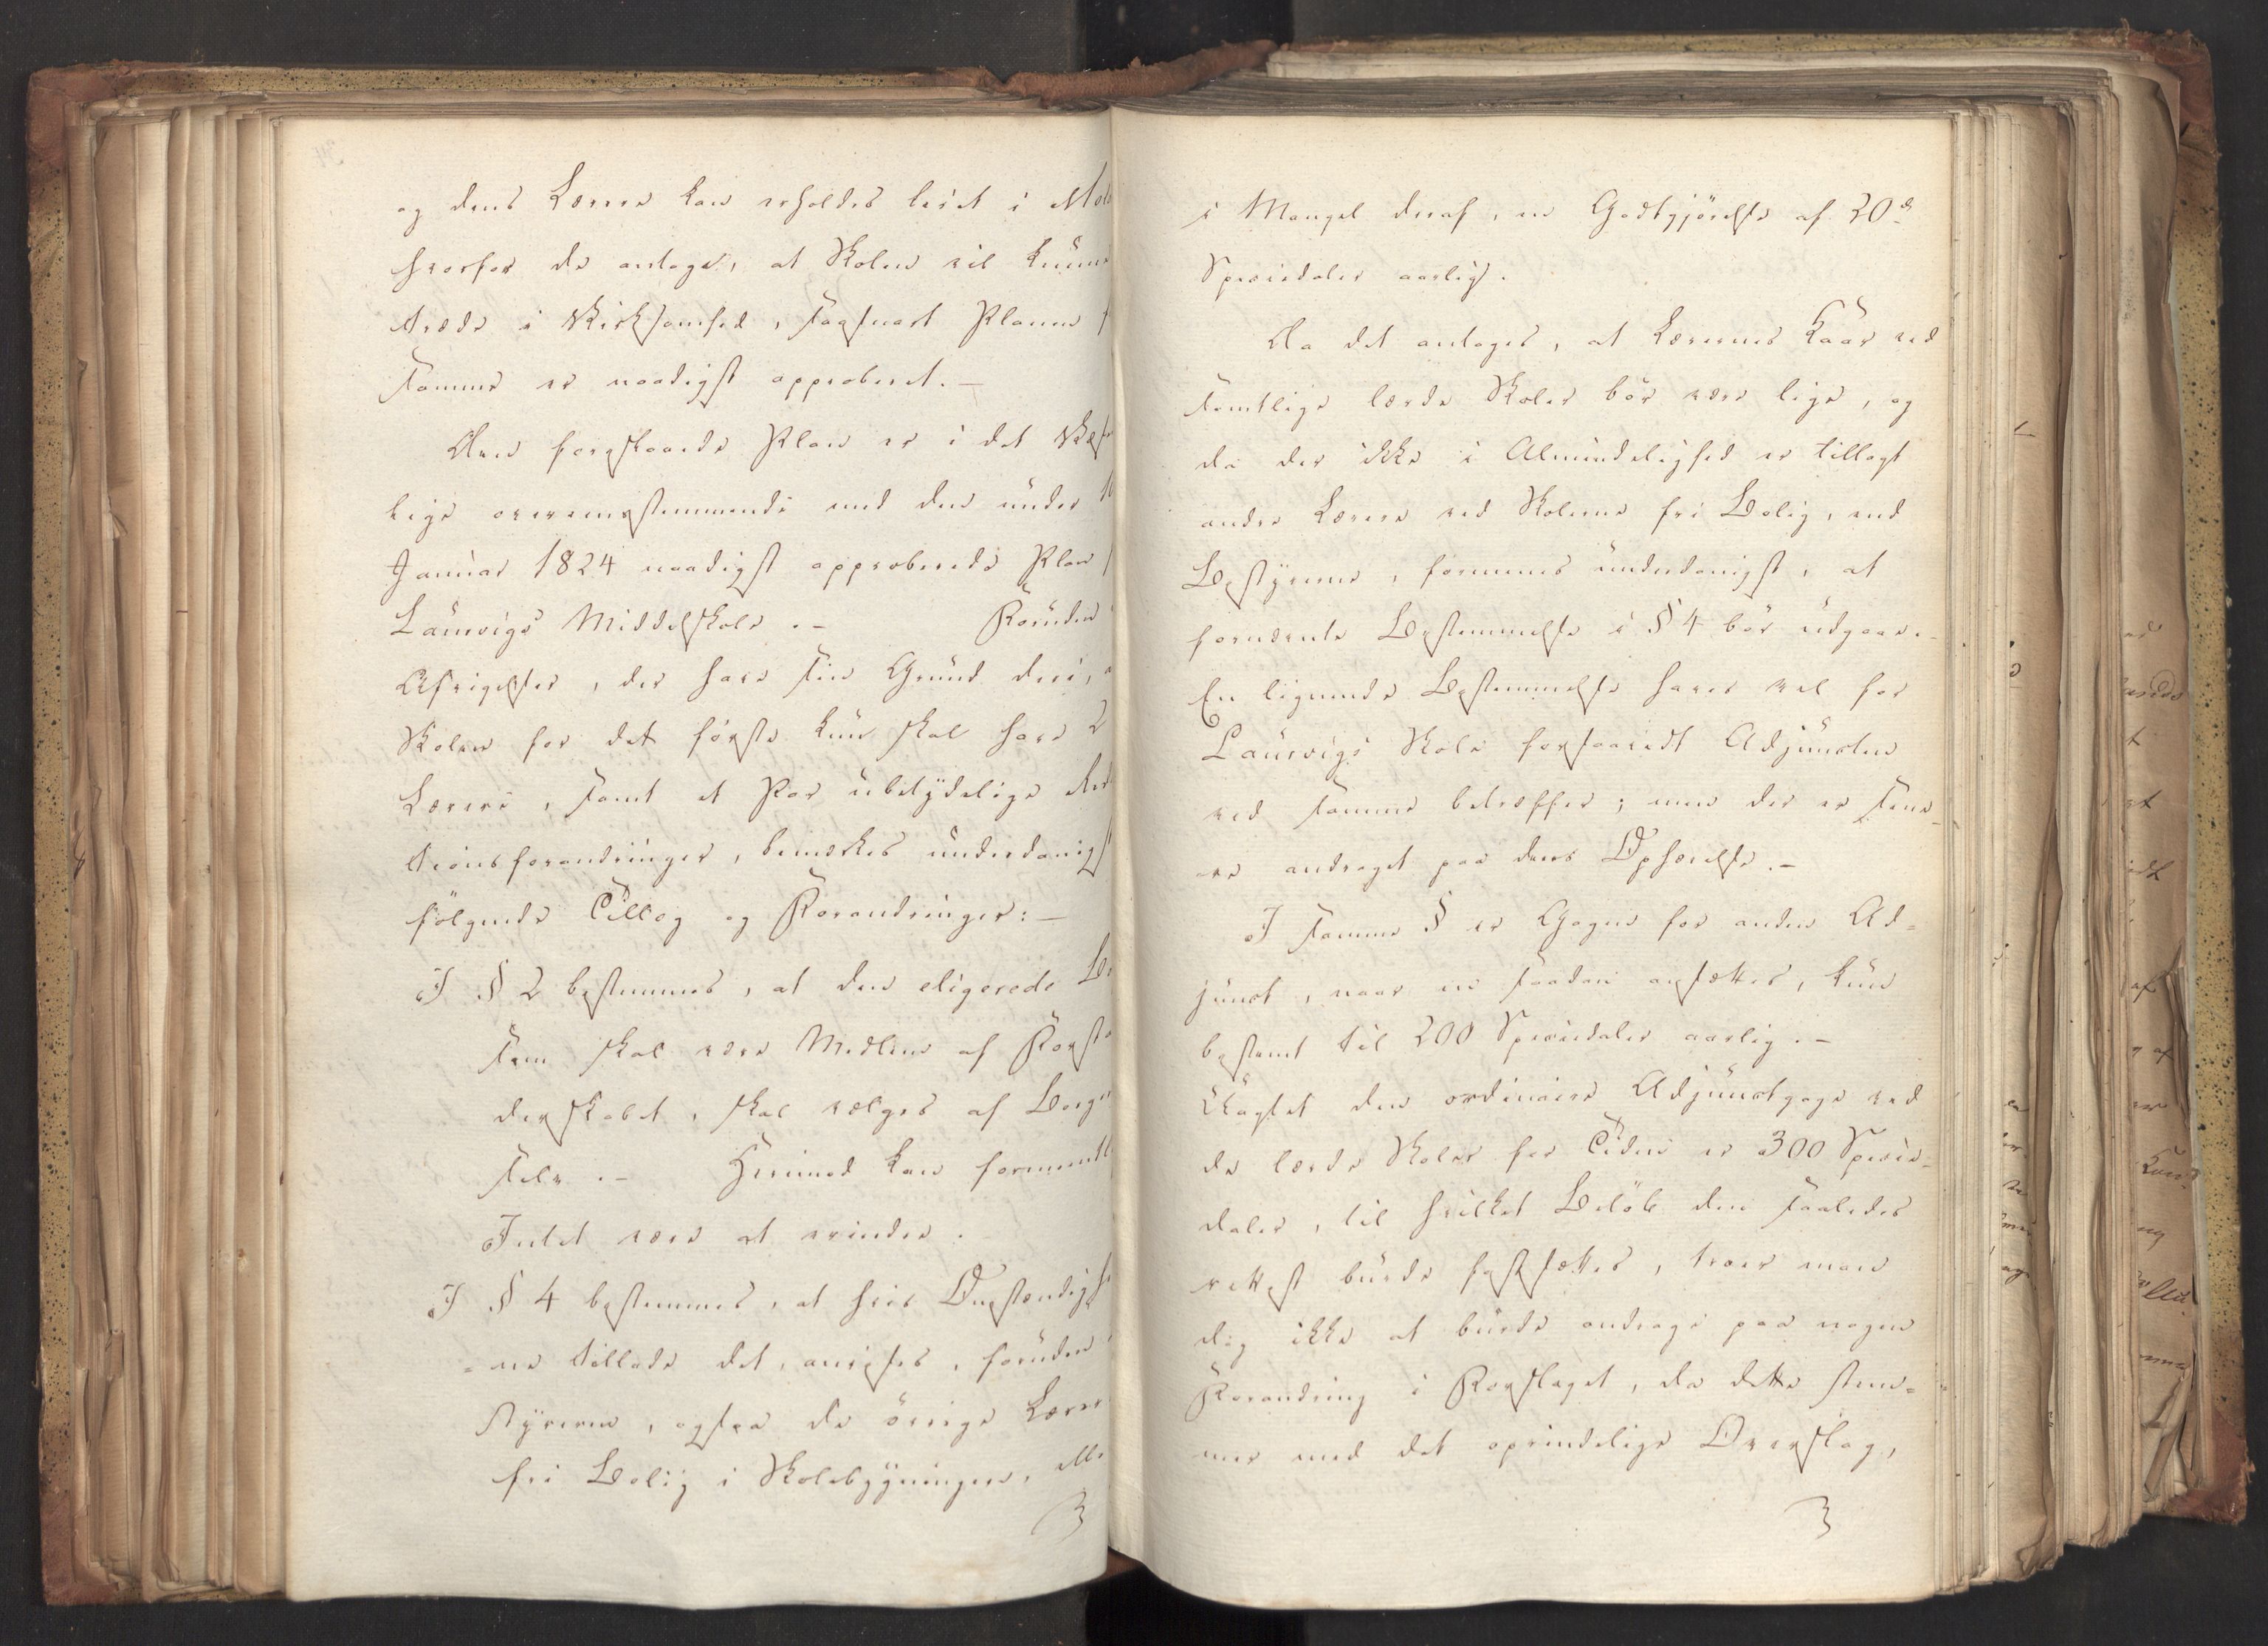 og dens Lærere kan erholdes leiet i
hvorfor de antage, at Skolen vil kunne
træde i Virksomhed, saasnart Planen
samme er naadigst approberet. —
Den foreslaaede Plan er i det Væs
lige overeensstemmende med den under
Januar 1824 naadigst approberede Plan
Laurvigs Middelskole. — Foruden
Afvigelser, der have sin Grund deri,
Skolen for det første kun skal have 2
Lærere, samt et Par ubetydelige Re
tionsforandringer, bemærkes underdanigst
følgende Tillæg og Forandringer: —
I § 2 bestemmes, at den eligerede
som skal være Medlem af Forsta
derskabet, skal vælges af Borger
selv. — Herimod kan formeentl
Intet være at erindre.
I § 4 bestemmes, at hvis Omstændigh
ne tillade det, anvises, foruden
styreren, ogsaa de øvrige Lærer
fri Bolig i Skolebygningen, elle
i Mangel deraf, en Godtgjørelse af 20
Speciedaler aarlig.
Da det antages, at Lærernes Kaar ved
samtlige lærde Skoler bør være lige, og
da der ikke i Almindelighed er tillagt
andre Lærere ved Skolerne fri Bolig, end
Bestyrerne, formenes underdanigst, at
fornævnte Bestemmelse i § 4 bør udgaae. —
En lignende Bestemmelse haves vel for
Laurvigs Skole forsaavidt Adjuncten
ved samme betræffer; men der er sene-
re andraget paa dens Ophævelse. —
I samme § er Gagen for anden Ad-
junct, naar en saadan ansættes, kun
bestemt til 200 Speciedaler aarlig. —
Uagtet den ordinaire Adjunctgage ved
de lærde Skoler for Tiden er 300 Specie-
daler, til hvilket Beløb den saaledes
rettest burde fastsættes, troer man
dog ikke at burde andrage paa nogen
Forandring i Forslaget, da dette stem-
mer med det oprindelige Overslag,